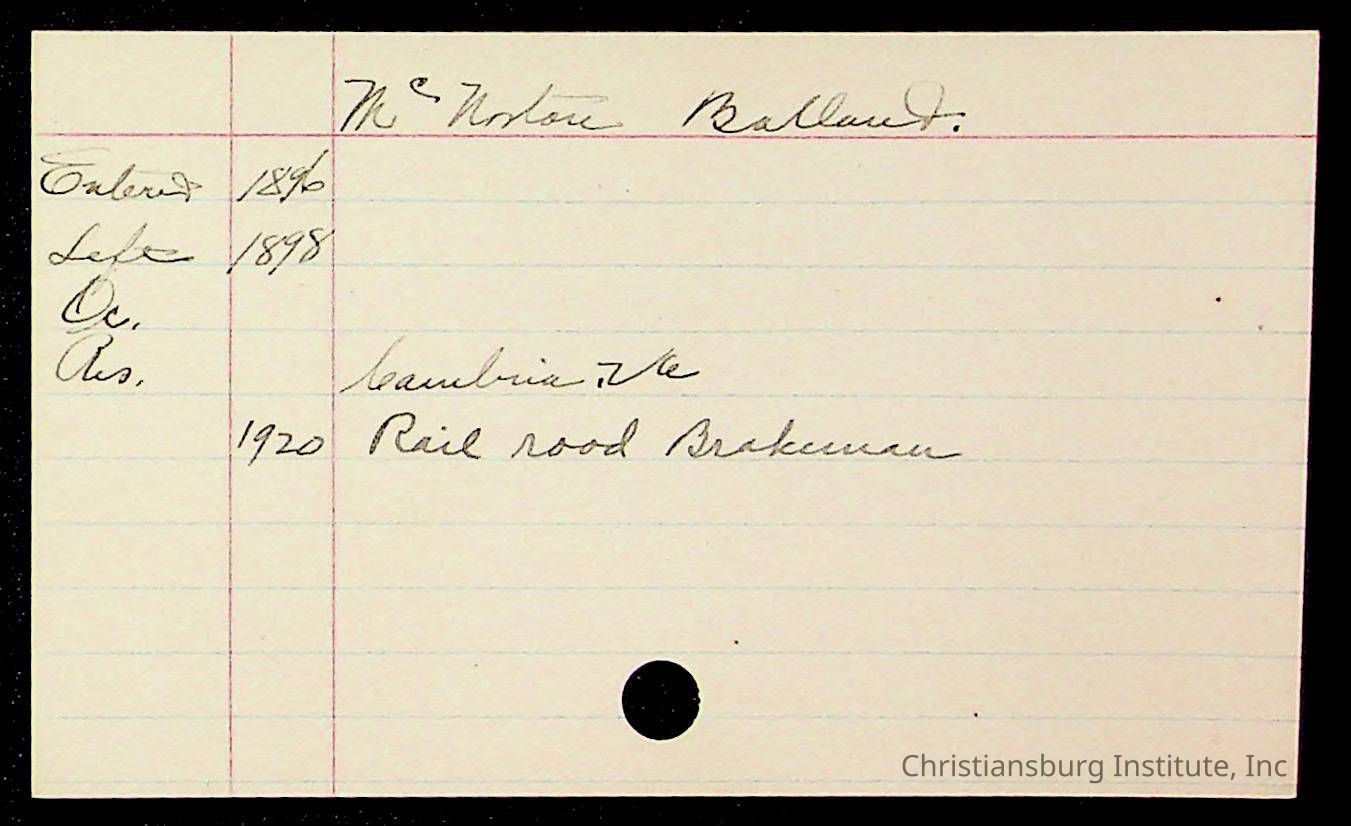 Mc Norton Ballard.
Entered 1896
Left 1898
Oc.
Res. Cambria, Va
1920 Rail road Brakeman
Christiansburg Institute, Inc